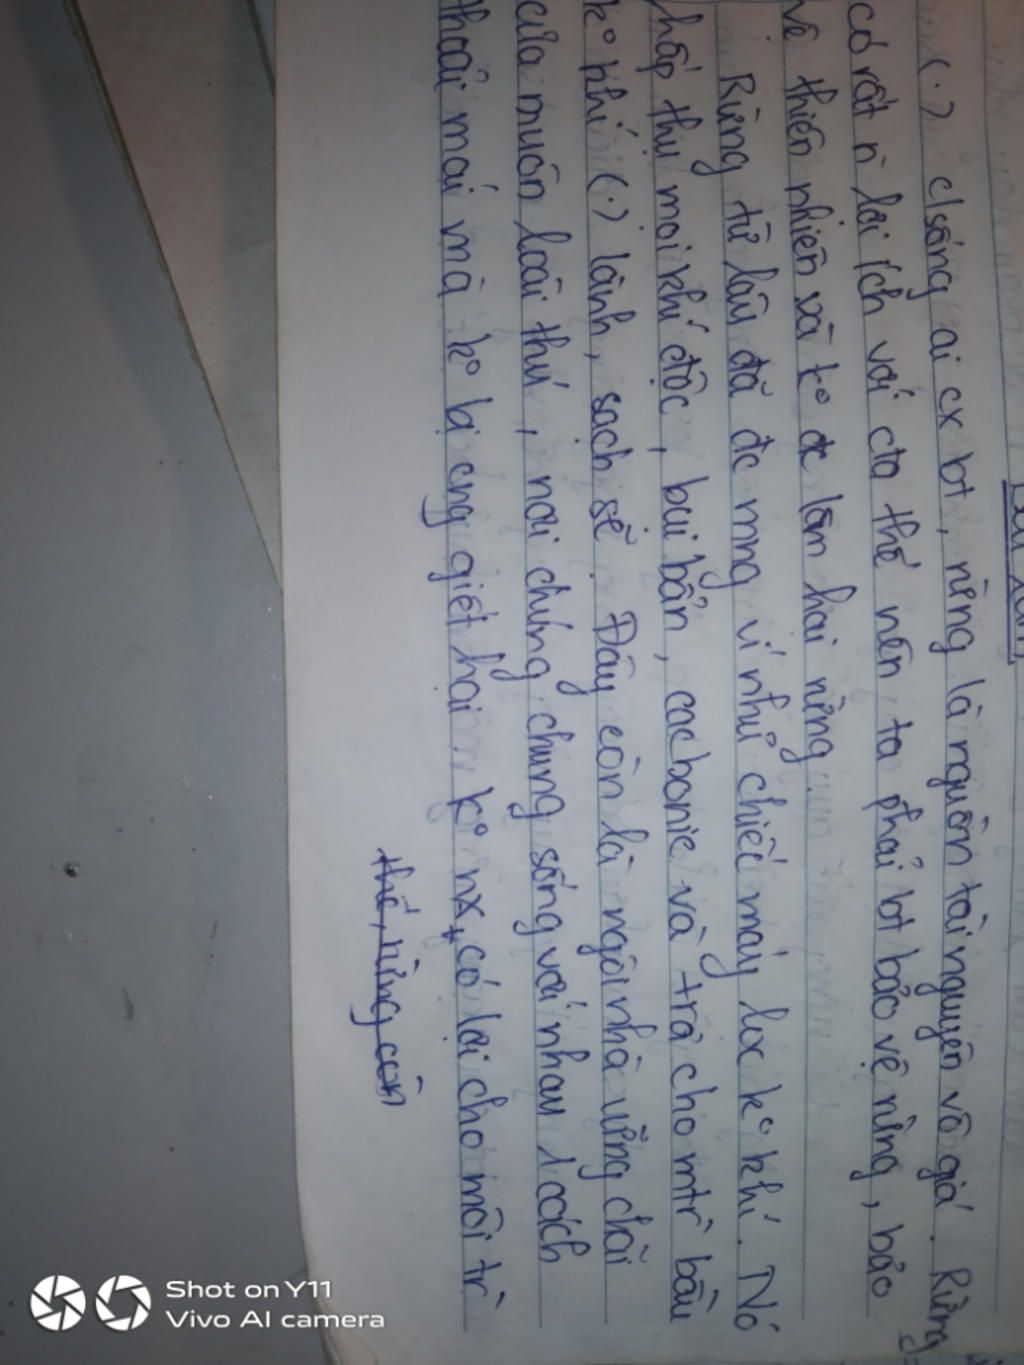 Bài
(.) c/sống ai cx bt, rừng là nguồn tài nguyên vô giá. Rừng
có rất n` lợi ích với cta thế nên ta phải bt bảo vệ rừng, bảo
vệ thiên nhiên và k° đc làm hại rừng
Rừng từ lâu đã đc mng ví như chiếc máy lọc k° khí. Nó
hấp thụ mọi khí độc, bụi bẩn, cacbonic và trả cho mtr` bầu
k° khí (.) lành, sạch sẽ. Đây còn là ngôi nhà
của muôn loài thú, nơi chúng chung sống với nhau 1 cách
thoải mái mà k° bị cng giết hại k° nx, có lợi cho môi tr`
thế, rừng còn
Shot on Y11
Vivo AI camera